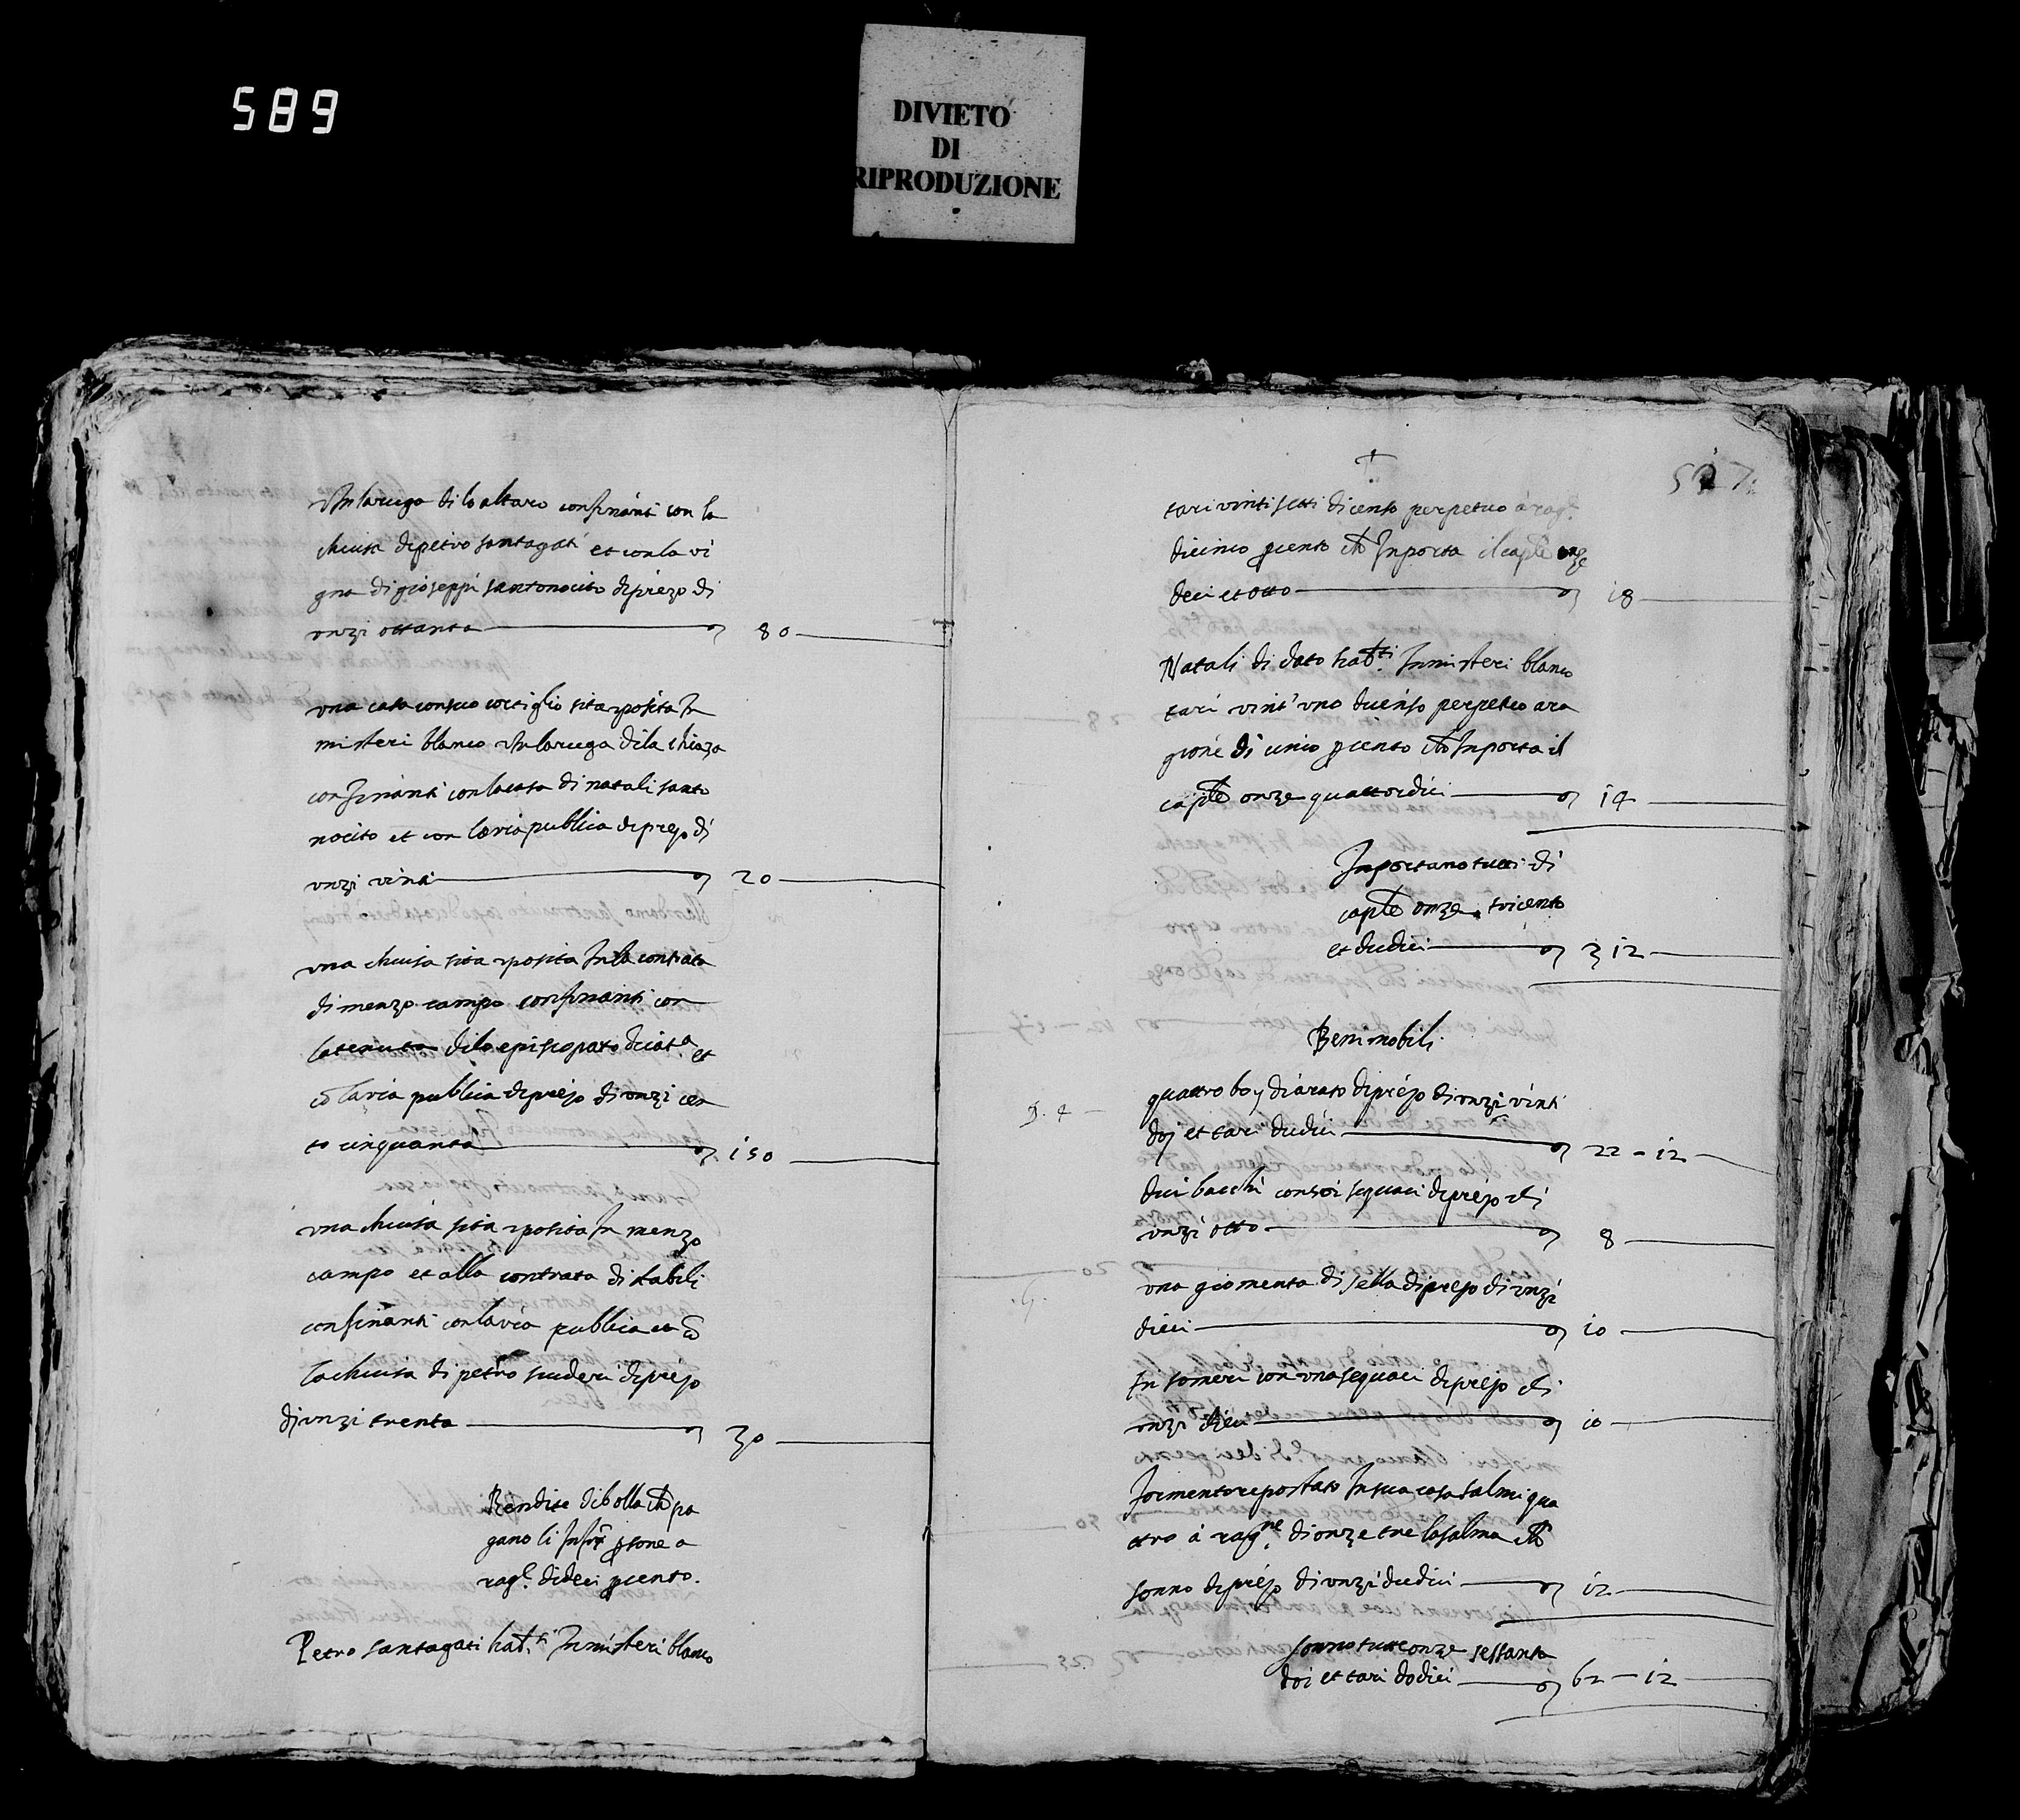 589
DIVIETO
DI
RIPRODUZIONE
In la ruga di lo altaro confinanti con la
chiusa di petro santagati et con la vi
gna di gioseppi santonocito di prezo di
onzi ottanta 80
una casa con suo cortiglio sita et posita In
misteri blanco In la ruga di la chiaza
confinanti con la casa di natali santo
nocito et con la via publica di prezo di
unzi vinti 20
una chiusa sita et posita In la contrata
di menzo campo confinanti con
la tenuta di lo episcopato di cat.a et
cō la via publica di prezo di unzi cen
to cinquanta 150
una chiusa sita et posita In menzo
campo et alla contrata di
confinanti con la via publica et cō
la chiusa di petro scuderi di prezo
di unzi trenta 30
Rendite di bolla ch̄ pa
gano li Infr̄i p̱sone a
rag.e di deci p̱ cento.
Petro santagati hat.ti In misteri blanco
527
tari vinti setti di censo perpetuo à rag.e
di cinco p̱ cento ch̄ Inporta il cap̄le onze
deci et otto 18
Natali di dato hat.ti In misteri blanco
tari vint'uno di censo perpetuo a ra
gione di cinco p̱ cento ch̄ Inporta il
cap̄le onze quattordici 14
Inportano tutti di
cap̄le onze tricento
et dudici 312
Beni mobili
quattro boy di arato di prezo di unzi vinti
doj et tari dudici 22 - 12
dui bacchi con soi sequaci di prezo di
unzi otto 8
una giomenta di sella di prezo di unzi
dieci 10
In someri con una sequaci di prezo di
unzi dieci 10
formento repostato In sua casa salmi qua
ttro à rag.ne di onze tre la salma ch̄
sonno di prezo di unzi dudici 12
sonno tutte onze sessanta
doi et tari dodici 62 - 12